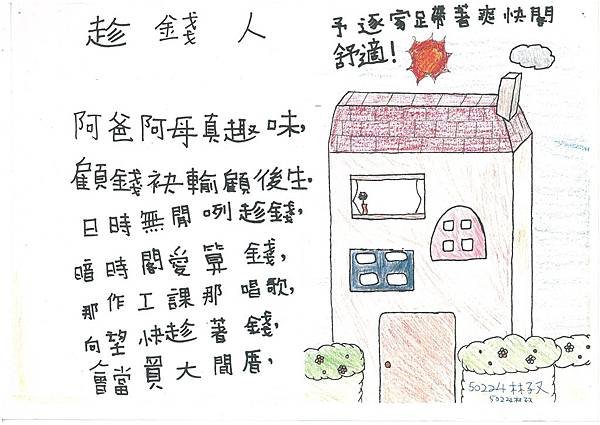 趁錢人
阿爸阿母真趣味,
顧錢袂輸顧後生.
日時無閒咧趁錢,
暗時閣愛算錢,
那作工課那唱歌,
向望快趁著錢,
會當買大間厝,
予逐家蹛著爽快閣
舒適!
50224林子又
50224林子又